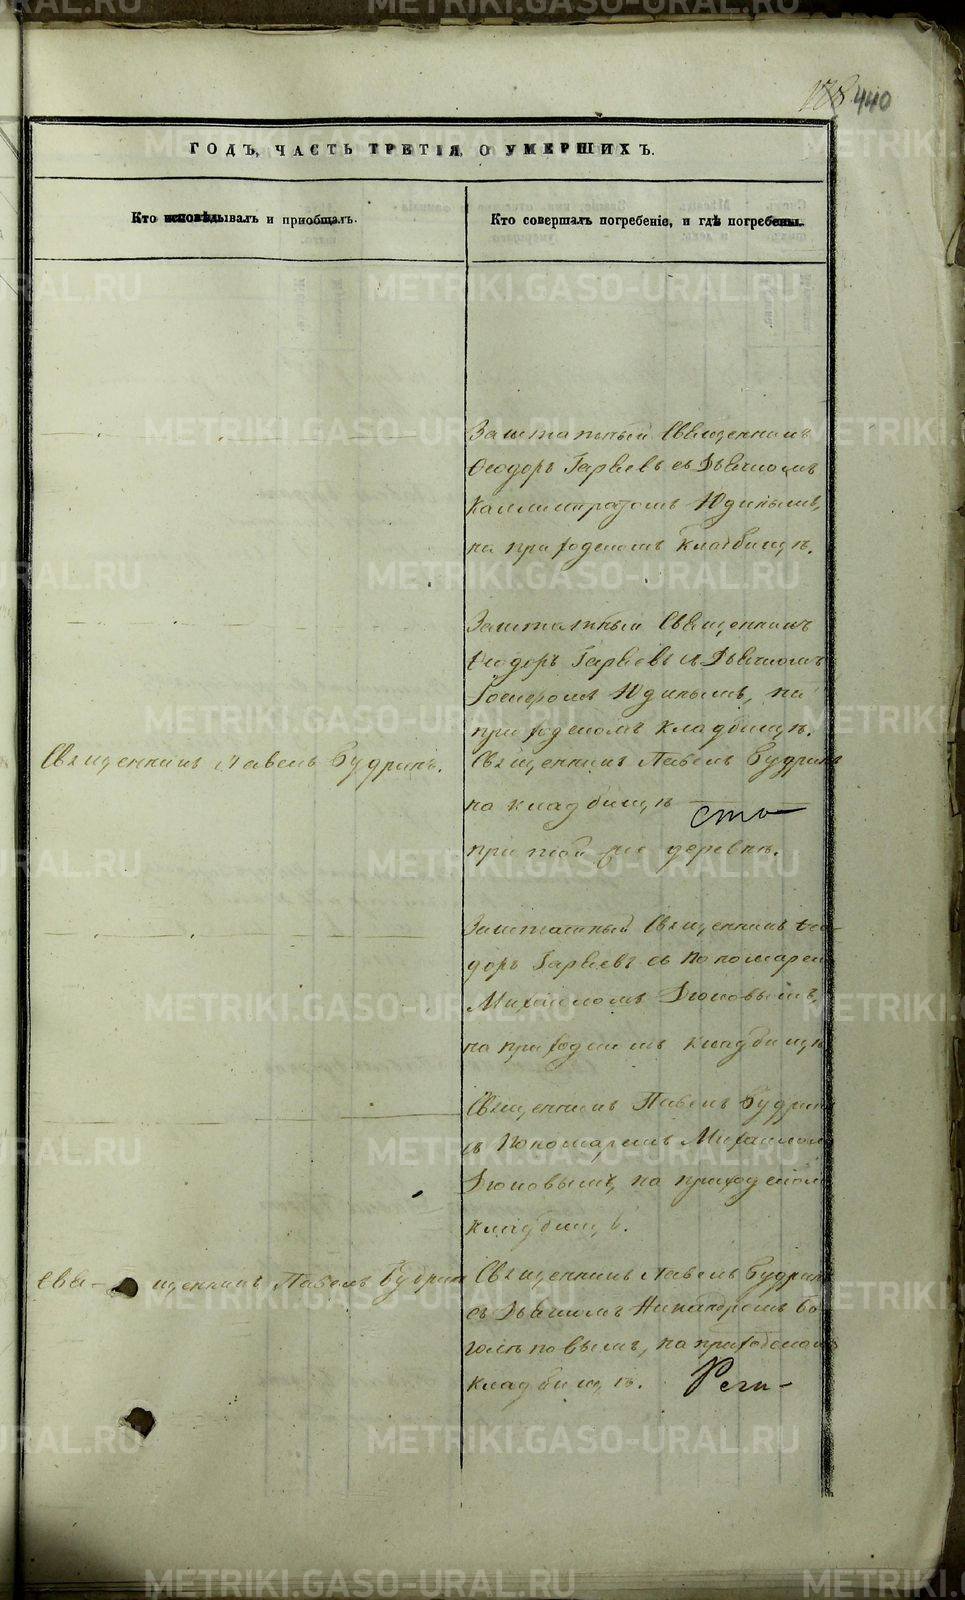 440
ГОДЪ, ЧАСТЬ ТРЕТІЯ, О УМЕРШИХЪ.
Кто исповѣдывалъ и приобщалъ.
Кто совершалъ погребеніе, и гдѣ погребены.
Заштатный Священникъ
Ѳеодоръ Гаряевъ съ Дьячкомъ
Каллистратомъ Юдинымъ,
на приходскомъ кладбищѣ.
Заштатный Священникъ
Ѳеодоръ Гаряевъ съ Дьячкомъ
Юдинымъ, на
приходскомъ кладбищѣ.
Священникъ Павелъ Будринъ.
Священникъ Павелъ Будринъ
на кладбищѣ
при той же деревнѣ.
Заштатный Священникъ Ѳео-
доръ Гаряевъ съ Пономаремъ
Михаиломъ
на приходскомъ кладбищѣ
Священникъ Павелъ Будринъ
съ Пономаремъ Михаиломъ
на приходскомъ
кладбищѣ.
Свя- щенникъ Павелъ Будринъ
Священникъ Павелъ Будринъ
съ Дьячкомъ Никандромъ Бо-
голѣповымъ, на приходскомъ
кладбищѣ.
METRIKI.GASO-URAL.RU